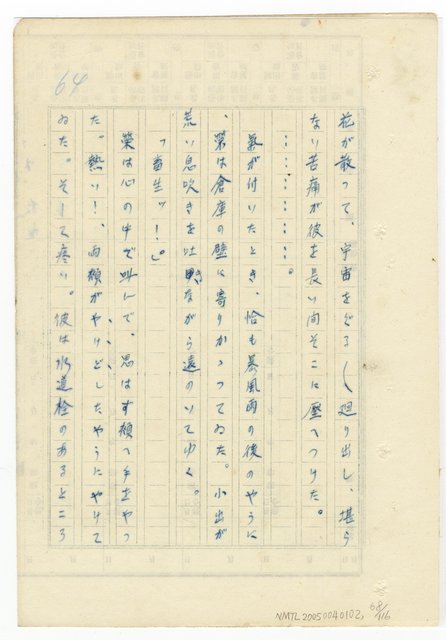 64
花が散って、宇宙をぐる〳〵廻り出し、堪ら
ない苦痛が彼を長い間そこに壓へつけた。
…………。
氣が付いたとき、恰も暴風雨の後のやうに
、榮は倉庫の壁に寄りかゝつてゐた。小出が
荒い息吹きを吐きながら遠のいてゆく。
「畜生ッ！」
榮は心の中で叫んで、思はず頬へ手をやつ
た。熱い！、両頬がやけどしたやうにやけて
ゐた。そして疼い。彼は水道栓のあるところ
NMTL20050040102, 68/116